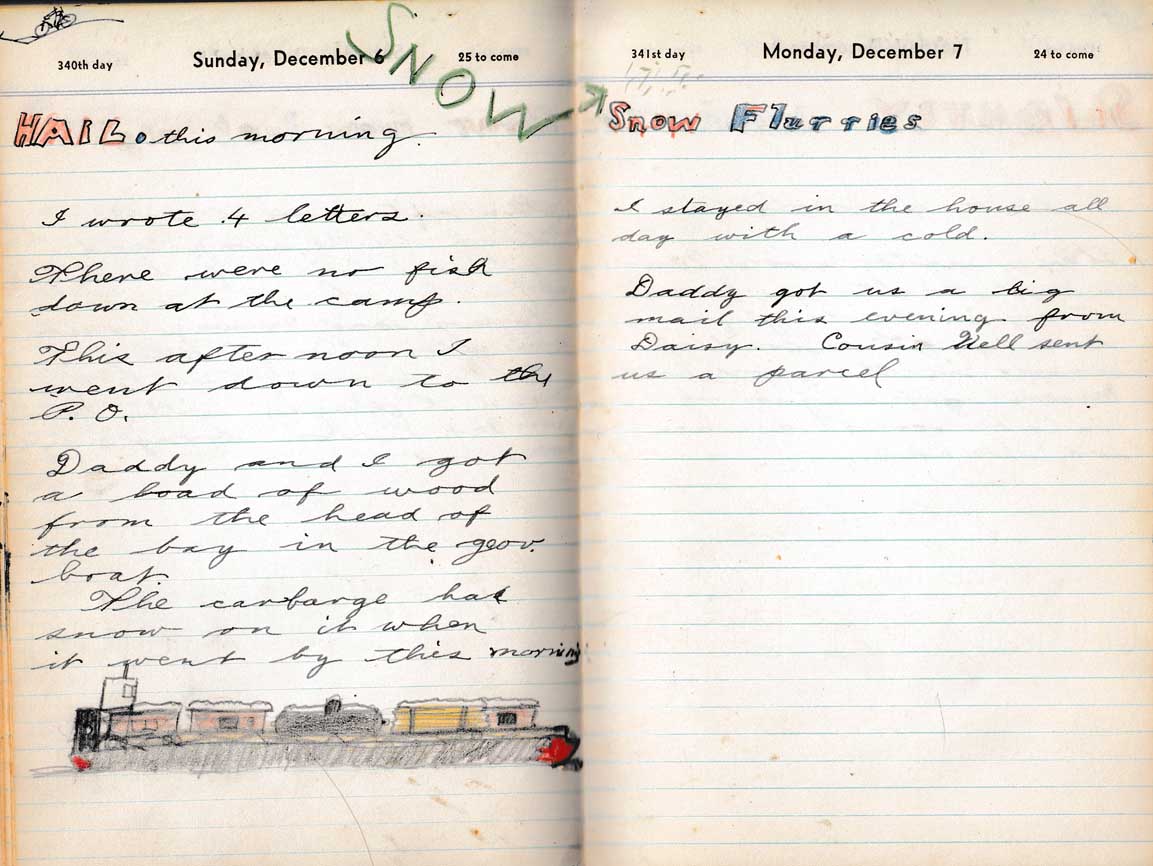 340th day
Sunday, December 6
25 to come
SNOW
HAIL this morning.
I wrote 4 letters.
There were no fish
down at the camp.
This after noon I
went down to the
P. O.
Daddy and I got
a load of wood
from the head of
the bay in the
boat.
The carbarge had
snow on it when
it went by this morning
341st day
Monday, December 7
24 to come
Snow Flurries
I stayed in the house all
day with a cold.
Daddy got us a big
mail this evening from
Daisy. Cousin Nell sent
us a parcel